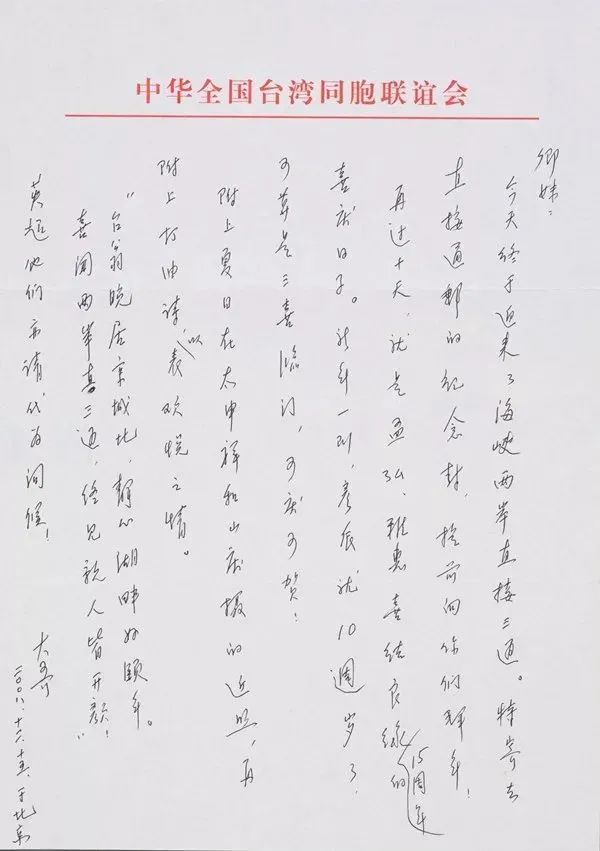 中华全国台湾同胞联谊会
卿妹：
今天终于迎来了海峡两岸直接三通。特寄去
直接通邮的纪念封，提前向你们拜年，
再过十天，就是孟弘、雅惠喜结良缘的15周年
喜庆日子。新年一到，彦辰就10周岁了，
可算是三喜临门，可庆可贺！
附上夏日在太申祥和山庄摄的近照，再
附上打油诗，以表欢悦之情。
“台翁晚居京城北，静心湖畔好颐年。
喜闻两岸真三通，终见亲人皆开颜！”
英超他们亦请代为问候！
大哥
二〇〇八.十二.十五.于北京